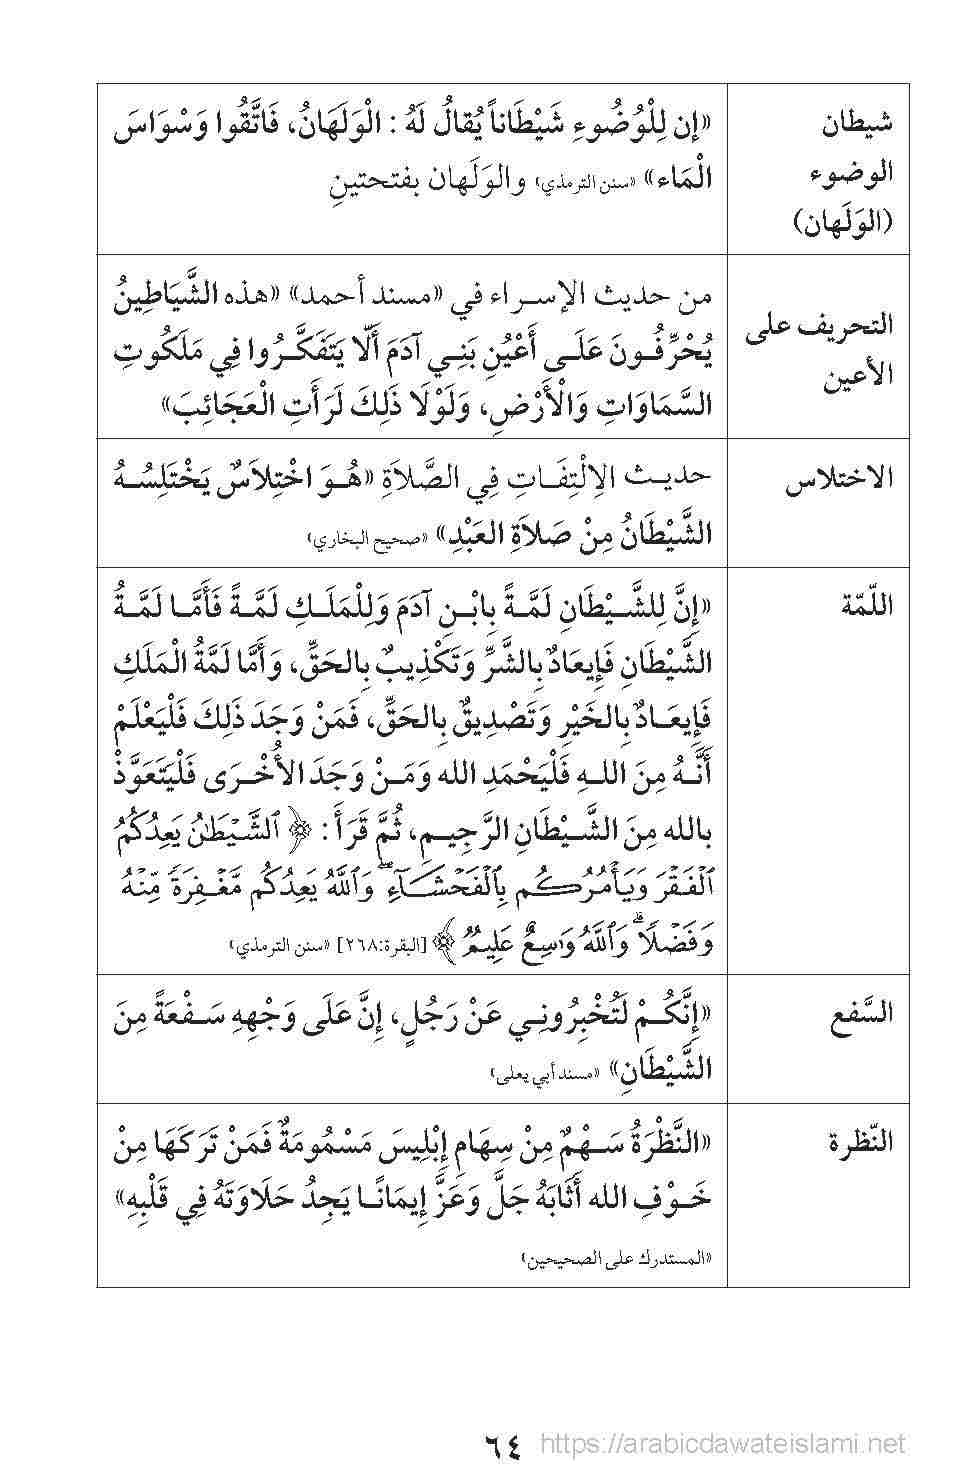 شيطان
الوضوء
(الوَلَهان)
«إن لِلْوُضُوءِ شَيْطَاناً يُقالُ لَهُ : الْوَلَهَانُ، فَاتَّقُوا وَسْوَاسَ
الْمَاء» «سنن الترمذي» والوَلَهان بفتحتينِ
التحريف على
الأعين
من حديث الإسراء في «مسند أحمد» «هذه الشَّيَاطِينُ
يُحْرِّفُونَ عَلَى أَعْيُنِ بَنِي آدَمَ أَلَّا يَتَفَكَّرُوا فِي مَلَكُوتِ
السَّمَاوَاتِ وَالْأَرْضِ، وَلَوْلَا ذَلِكَ لَرَأَتِ الْعَجَائِبَ»
الاختلاس
حديث الِالْتِفَاتِ فِي الصَّلَاةِ «هُوَ اخْتِلَاسٌ يَخْتَلِسُهُ
الشَّيْطَانُ مِنْ صَلَاةِ العَبْدِ» «صحيح البخاري»
اللّمّة
«إِنَّ لِلشَّيْطَانِ لَمَّةً بِابْنِ آدَمَ وَلِلْمَلَكِ لَمَّةً فَأَمَّا لَمَّةُ
الشَّيْطَانِ فَإِيعَادٌ بِالشَّرِّ وَتَكْذِيبٌ بِالحَقِّ، وَأَمَّا لَمَّةُ الْمَلَكِ
فَإِيعَادٌ بِالخَيْرِ وَتَصْدِيقٌ بِالحَقِّ، فَمَنْ وَجَدَ ذَلِكَ فَلْيَعْلَمْ
أَنَّهُ مِنَ اللهِ فَلْيَحْمَدِ الله وَمَنْ وَجَدَ الأُخْرَى فَلْيَتَعَوَّذْ
بالله مِنَ الشَّيْطَانِ الرَّجِيمِ، ثُمَّ قَرَأَ : ﴿ ٱلشَّيْطَٰنُ يَعِدُكُمُ
ٱلْفَقْرَ وَيَأْمُرُكُم بِٱلْفَحْشَآءِ ۖ وَٱللَّهُ يَعِدُكُم مَّغْفِرَةً مِّنْهُ
وَفَضْلًا ۗ وَٱللَّهُ وَٰسِعٌ عَلِيمٌ ﴾ [البقرة:٢٦٨] «سنن الترمذي»
السَّفع
«إِنَّكُمْ لَتُخْبِرُونِي عَنْ رَجُلٍ، إِنَّ عَلَى وَجْهِهِ سَفْعَةً مِنَ
الشَّيْطَانِ» «مسند أبي يعلى»
النّظرة
«النَّظْرَةُ سَهْمٌ مِنْ سِهَامِ إِبْلِيسَ مَسْمُومَةٌ فَمَنْ تَرَكَهَا مِنْ
خَوْفِ الله أَثَابَهُ جَلَّ وَعَزَّ إِيمَانًا يَجِدُ حَلَاوَتَهُ فِي قَلْبِهِ»
«المستدرك على الصحيحين»
٦٤ https://arabicdawateislami.net